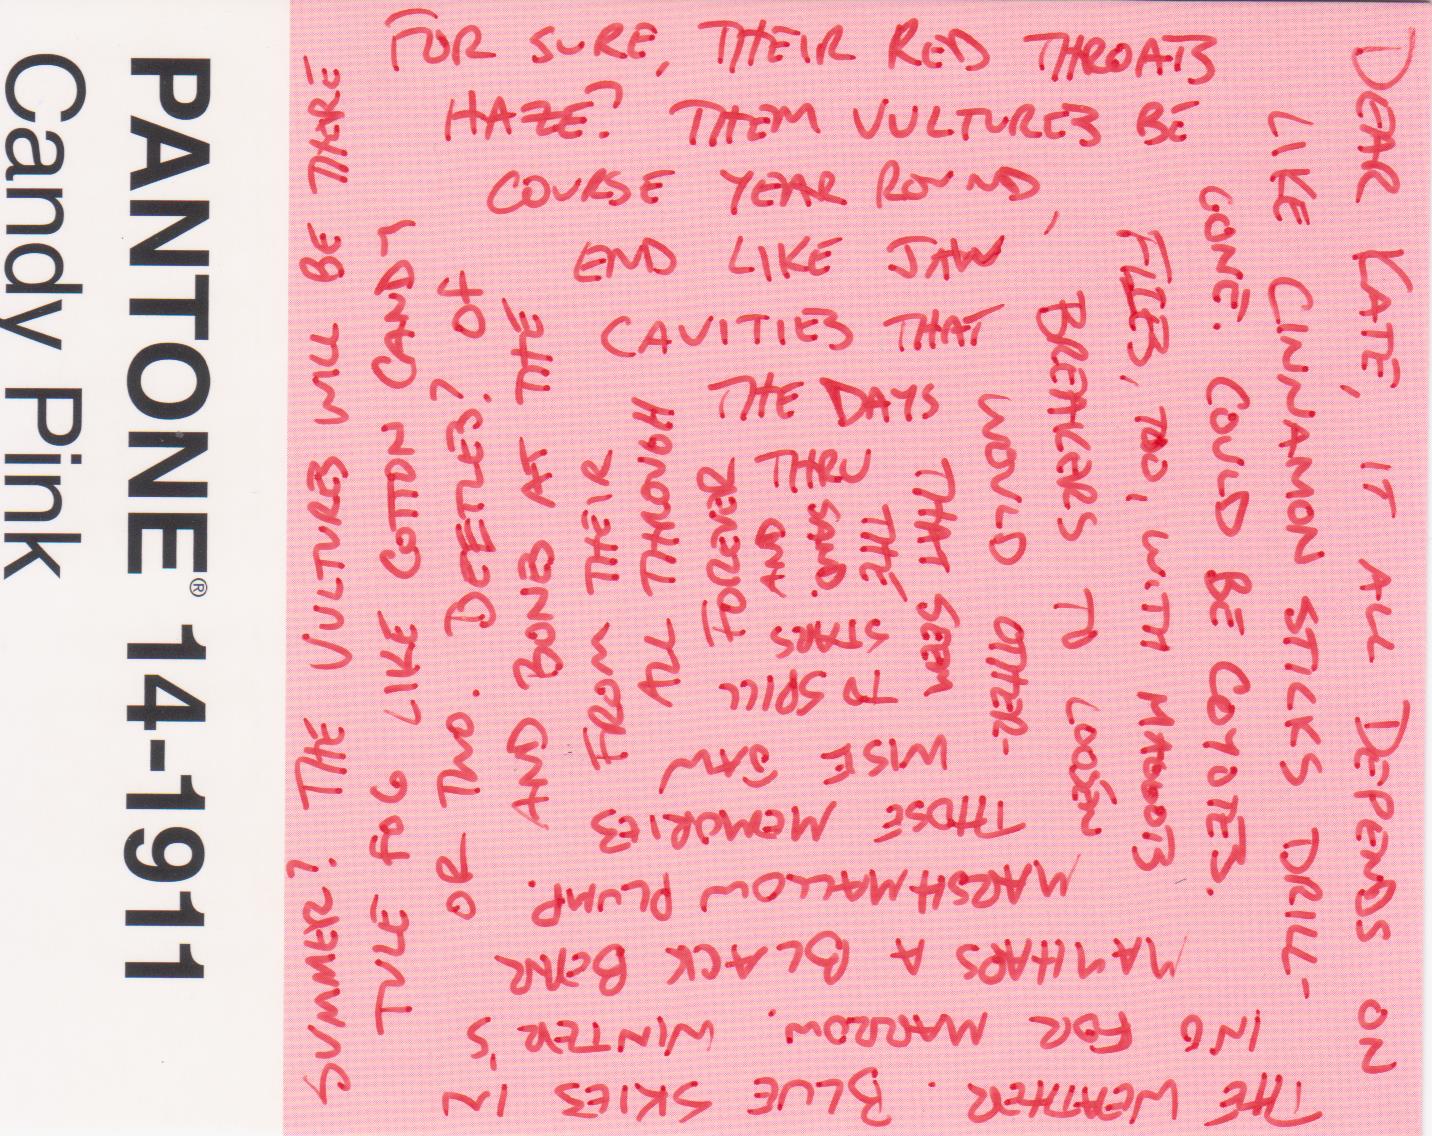 PANTONE® 14-1911
Candy Pink
DEAR KATE, IT ALL DEPENDS ON
THE WEATHER. BLUE SKIES IN
SUMMER? THE VULTURES WILL BE THERE
FOR SURE, THEIR RED THROATS
LIKE CINNAMON STICKS DRILL-
ING FOR MARROW. WINTER'S
TULE FOG LIKE COTTON CANDY
HAZE? THEM VULTURES BE
GONE. COULD BE COYOTES.
MAYHAPS A BLACK BEAR
OR TWO. BEETLES? OF
COURSE YEAR ROUND,
FLIES, TOO, WITH MAGGOTS
MARSHMALLOW PLUMP.
AND BONES AT THE
END LIKE JAW
BREAKERS TO LOOSEN
THOSE MEMORIES
FROM THEIR
CAVITIES THAT
WOULD OTHER-
WISE DAM
ALL THROUGH
THE DAYS
THAT SEEM
TO SPILL
FOREVER
THRU
THE
STARS
AND
SAND.